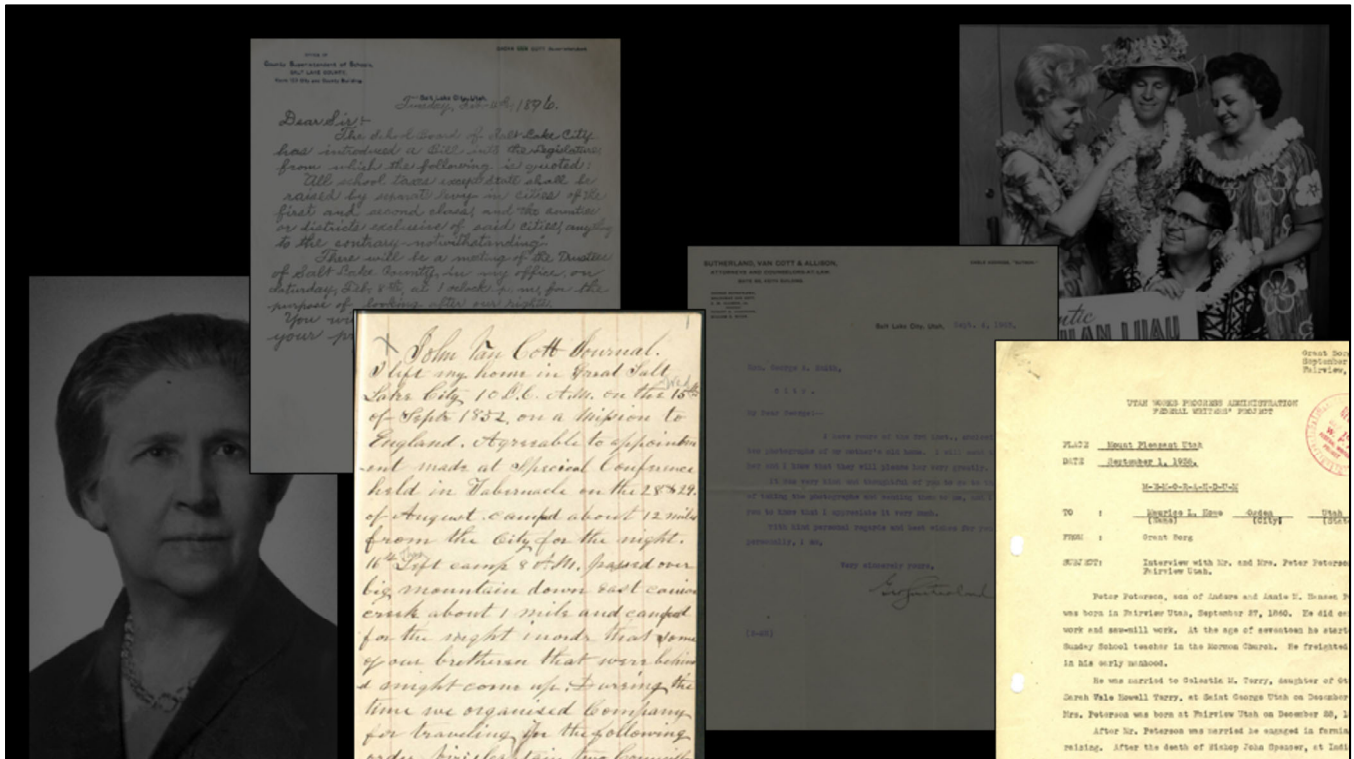 OFFICE OF
County Superintendent of Schools,
SALT LAKE COUNTY,
Salt Lake City, Utah,
1896.
Dear Sir:-
The School Board of Salt Lake City
has introduced a Bill into the Legislature
from which the following is quoted:
"All school taxes except State shall be
raised by separate levy in cities of the
first and second class, and the counties
or districts exclusive of said cities, anything
to the contrary notwithstanding".
There will be a meeting of the Trustees
of Salt Lake County, in my office, on
Saturday, Feb. 8th, at 1 o'clock p.m., for the
purpose of looking after our rights.
You
your
John Van Cott Journal.
I left my home in Great Salt
Lake City 10 O.C. A.M. on the 15th
of Septr 1852, on a mission to
England. Agreeable to appointm
ent made at Special Conference
held in Tabernacle on the 28 & 29.
of August. camped about 12 miles
from the City for the night.
16th Left camp 8 A.M. passed over
big mountain down east canion
creek about 1 mile and camped
for the night inorde that some
of our bretheren that were behin
d might come up. During the
time we organised Company
for traveling in the following
SUTHERLAND, VAN COTT & ALLISON,
ATTORNEYS AND COUNSELORS AT LAW
Salt Lake City, Utah, Sept. 4, 1908.
Hon. George A. Smith,
City.
My Dear George:--
I have yours of the 3rd inst.,
photographs of my mother's old home. I will send
her and I know that they will please her very greatly.
It was very kind and thoughtful of you to go to
of taking the photographs and sending them to me, and
you to know that I appreciate it very much.
With kind personal regards and best wishes for you
personally, I am,
Very sincerely yours,
Geo Sutherland
LUAU
Grant Borg
September
Fairview,
UTAH WORKS PROGRESS ADMINISTRATION
FEDERAL WRITERS' PROJECT
PLACE Mount Pleasant Utah
DATE September 1, 1938.
M-E-M-O-R-A-N-D-U-M
TO : Maurice L. Howe Ogden Utah
(Name) (City) (State
FROM : Grant Borg
SUBJECT: Interview with Mr. and Mrs. Peter Peterso
Fairview Utah.
Peter Peterson, son of Anders and Annie M. Hansen P
was born in Fairview Utah, September 27, 1860. He did
work and saw-mill work. At the age of seventeen he start
Sunday School teacher in the Mormon Church. He freighted
in his early manhood.
He was married to Celestia M. Terry, daughter of Ot
Sarah Vale Howell Terry, at Saint George Utah on December
Mrs. Peterson was born at Fairview Utah on December 28, 1
After Mr. Peterson was married he engaged in farmin
raising. After the death of Bishop John Spencer, at Indi